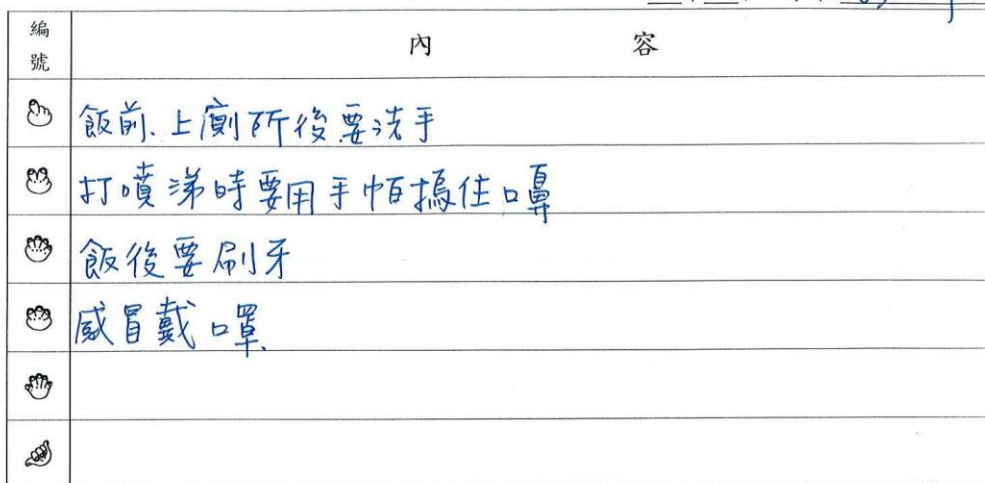 編號 內容
飯前、上廁所後要洗手
打噴涕時要用手帕摀住口鼻
飯後要刷牙
感冒戴口罩